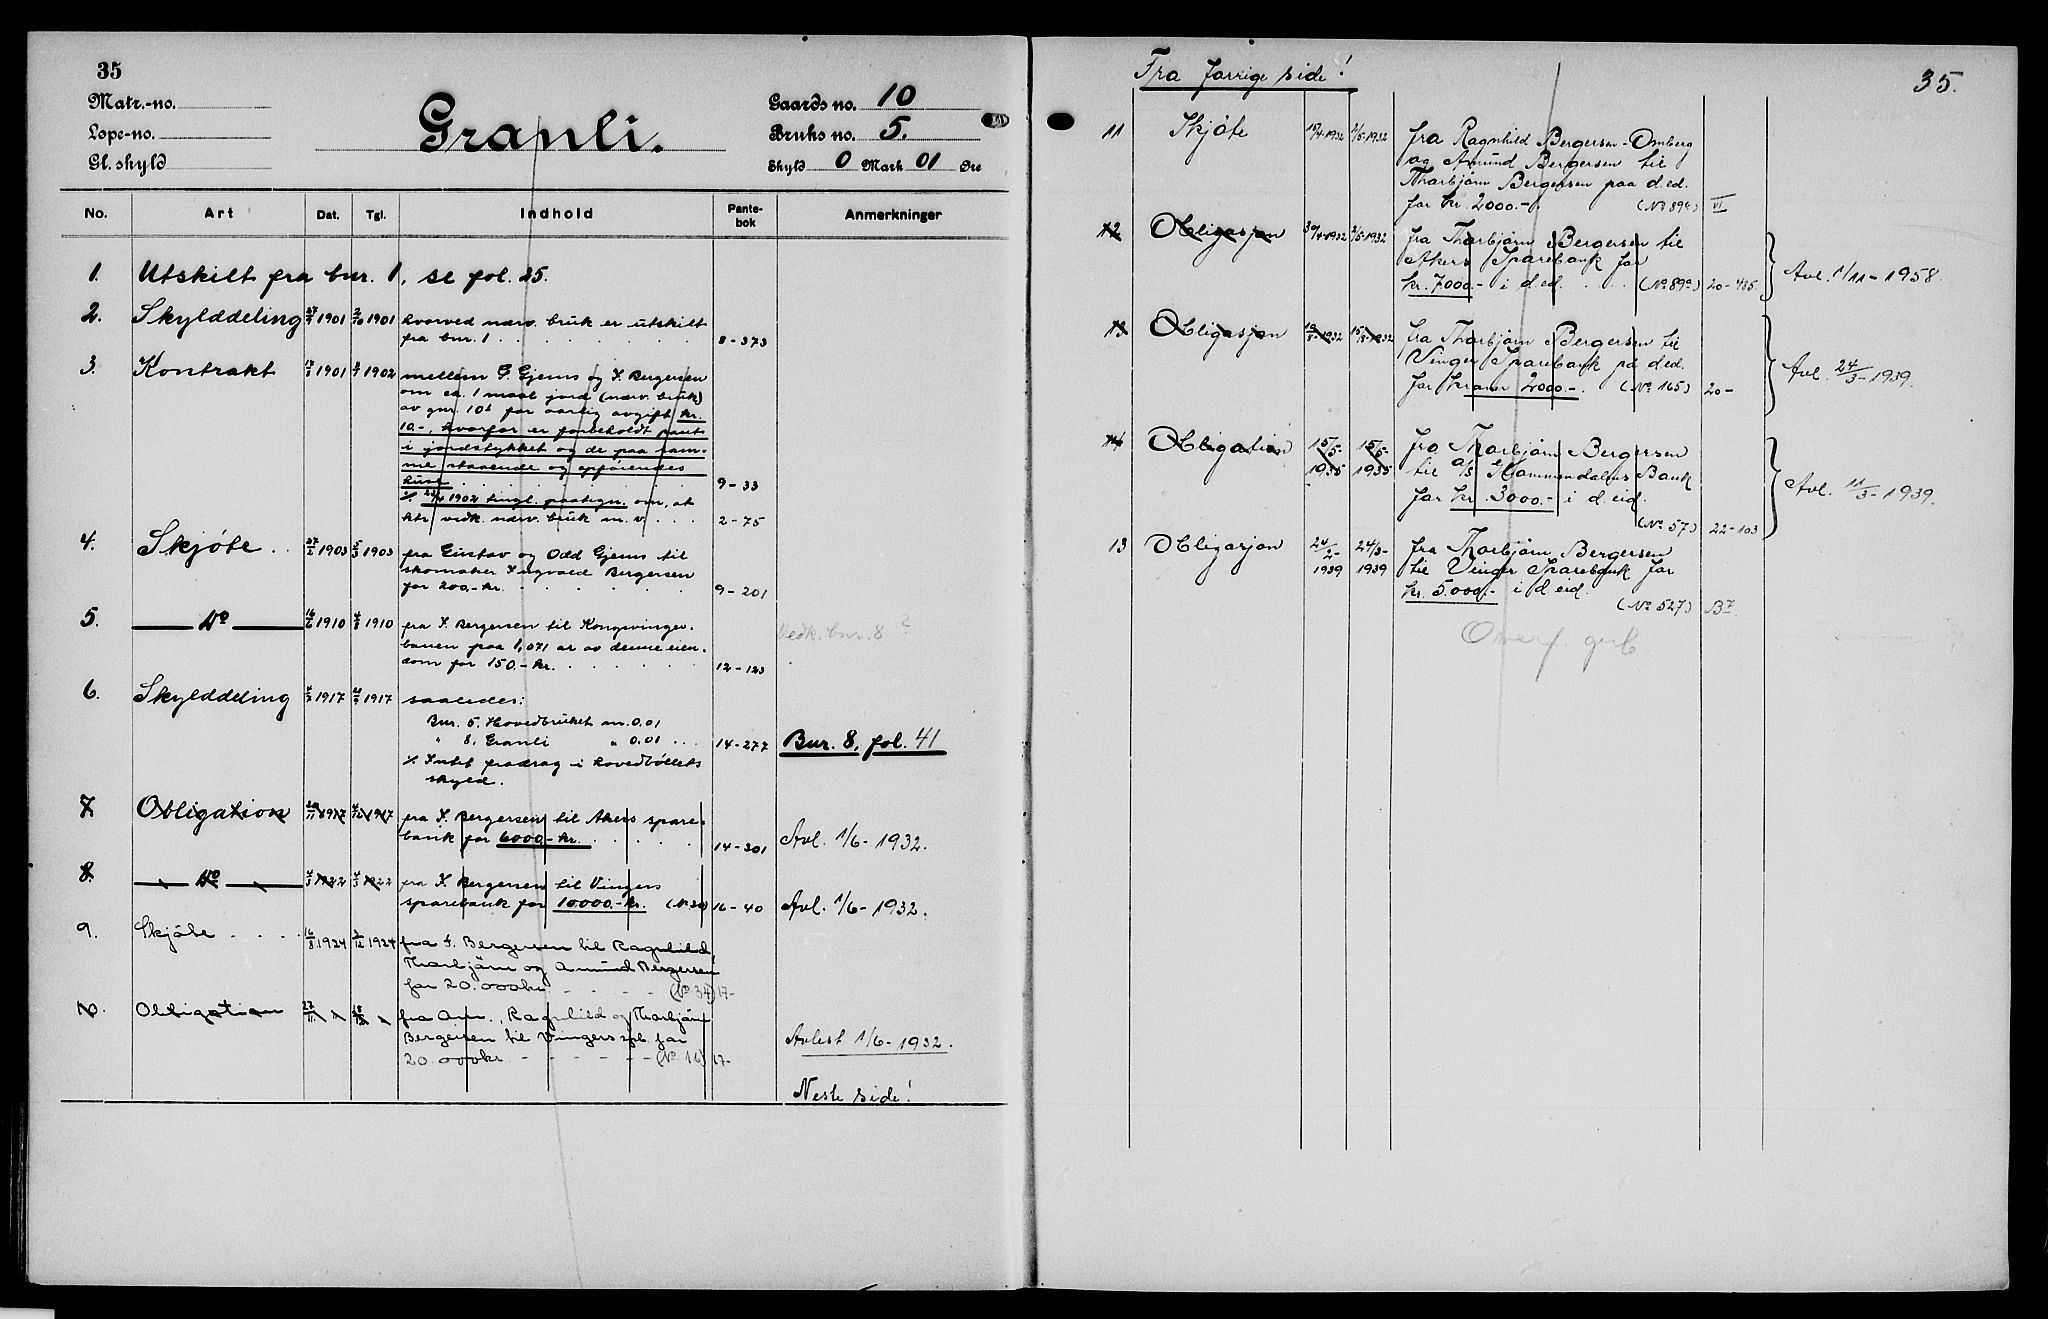 35
Matr.-no.
Løpe-no.
Gl. skyld
Granli.
Gaards no. 10
Bruks no. 5.
Skyld 0 Mark 01 Øre
No. Art Dat. Tgl. Indhold Pante-bok Anmerkninger
1. Utskilt fra bnr. 1, se fol. 25.
2. Skylddeling 1901 1901 hvorved nærv. bruk er utskilt
fra bnr. 1 . . . . . . . . 8-373
3. Kontrakt 1901 1902 mellem G. Gjems og I. Bergersen
om ca. 1 maal jord (nærv. bruk)
av gnr. 10 for aarlig avgift kr.
10.-, hvorfor er forbeholdt pant
i jordstykket og de paa sam-
me staaende og opførendes
huse . . . . . . . 9-33
1902 tingl. paategn. om, at
ktr. vedk. nærv. bruk m. v. . . . 2-75
4. Skjøte . . 1903 1903 fra Gustav og Odd Gjems til
skomaker Ingvald Bergersen
for 200.- kr. . . . . . . 9-201
5. — Do — 1910 1910 fra I. Bergersen til Kongsvinger-
banen paa 1,071 ar av denne eien-
dom for 150.- kr. . . . . . 12-123
Vedk. bnr. 8 ?
6. Skylddeling 1917 1917 saaledes:
Bnr. 5. Hovedbruket m. 0.01
" 8, Granli " 0.01 . . . 14-277 Bnr. 8, fol. 41
Intet fradrag i hovedbøllets
skyld.
7. Obligation 1917 1917 fra I. Bergersen til Akers spare-
bank for 6000.- kr. . . . . . 14-301 Avl. 1/6-1932.
8. — Do — 1922 1922 fra I. Bergersen til Vingers
sparebank for 10000.- kr. (No 30) 16-40 Avl. 1/6-1932.
9. Skjøte . . . . 16/8 1924 2/12 1924 fra I. Bergersen til Ragnhild,
Thorbjørn og Amund Bergersen
for 20.000 kr. - - - - (No 34) 17-
10. Obligation 27/11 " " fra Am., Ragnhild og Thorbjørn
Bergersen til Vingers spb. for
20.000 kr. - - - - - (No 16) 17-
Avlest 1/6-1932.
Neste side!
Fra forrige side!
35.
11 Skjøte 15/4-1932 2/5-1932 fra Ragnhild Bergersen-Omberg
og Amund Bergersen til
Thorbjørn Bergersen paa d.ed.
for kr. 2000.-. (No 898) VI
12 Obligasjon 30/4-1932 2/5-1932 fra Thorbjørn Bergersen til
Akers Sparebank for
kr. 7000.- i d.ed. . . . (No 899) 20-485
Avl. 1/11-1958.
13 Obligasjon 1932 15/8-1932 fra Thorbjørn Bergersen til
Vinger Sparebank på d.ed.
for kroner 2000.-. (No 165) 20-
Avl. 24/3-1939.
14 Obligation 15/5-1935 15/5-1935 fra Thorbjørn Bergersen
til A/S Glommendalens Bank
for kr. 3000.- i d. eid.
(No 57) 22-103
Avl. 11/3-1939.
13 Obligasjon 24/2-1939 24/3-1939 fra Thorbjørn Bergersen
til Vinger Sparebank for
kr. 5.000.- i d eid.
(No 527) B7.
Overf. gnb